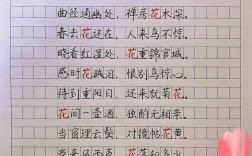 曲径通幽处，禅房花木深。
春去花还在，人来鸟不惊。
晓看红湿处，花重锦官城。
感时花溅泪，恨别鸟惊心。
待到重阳日，还来就菊花。
花间一壶酒，独酌无相亲。
当窗理云鬓，对镜帖花黄。